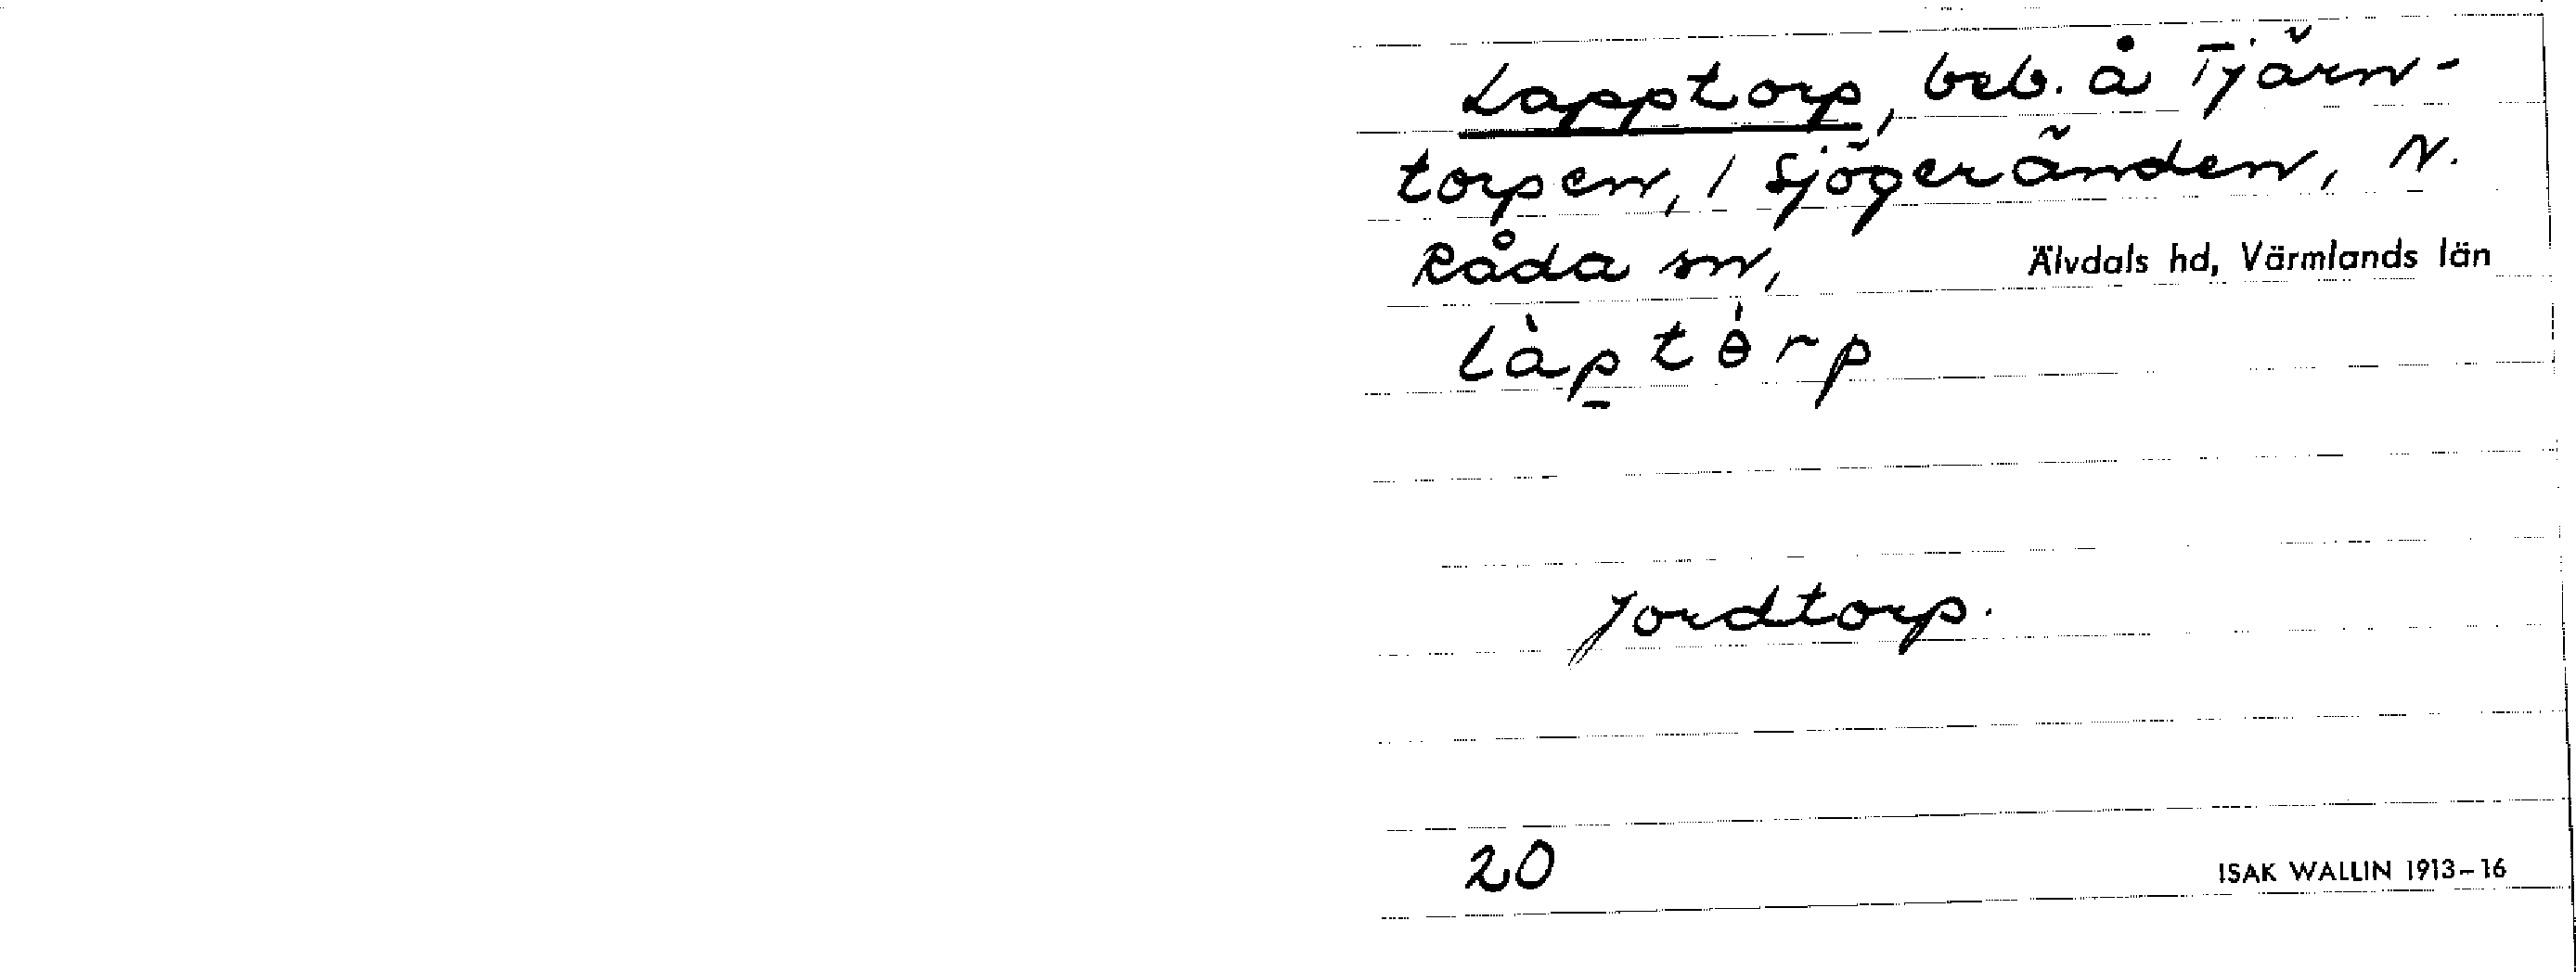 Lapptorp, beb. å Tjärn-
torpen, i Sjögeränden, N.
Råda sn, Älvdals hd, Värmlands län
làptò̵rp
Jordtorp.
20 ISAK WALLIN 1913-16